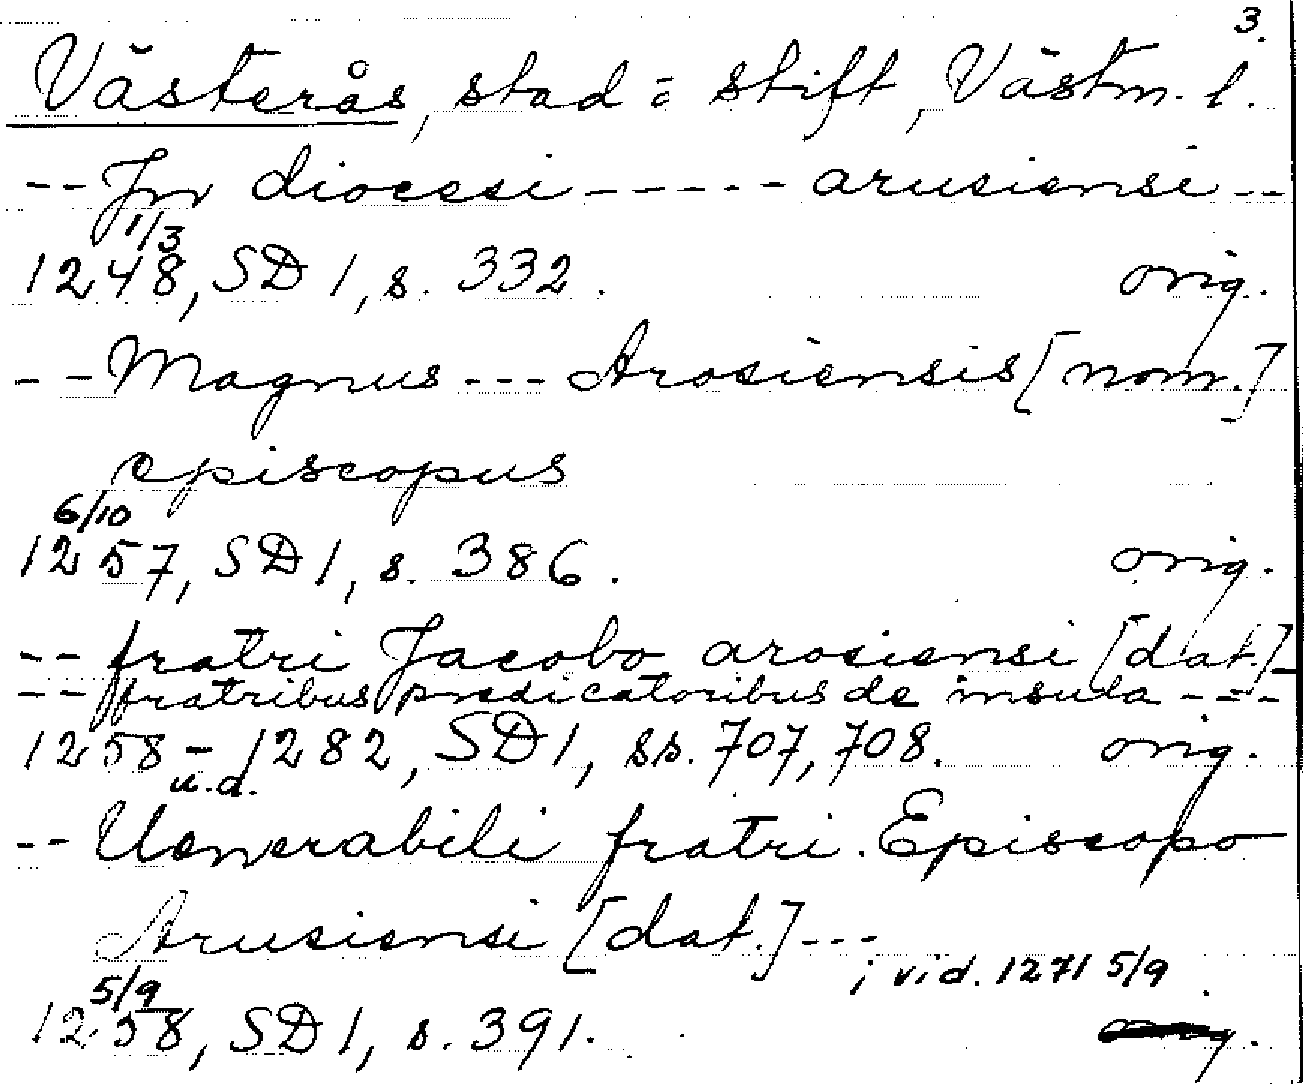 3.
Västerås, stad = stift, Västm. l.
-- In diocesi ----- arusiensi --
1/3
1248, SD 1, s. 332. orig.
-- Magnus --- Arosiensis [nom.]
episcopus
6/10
1257, SD 1, s. 386. orig.
-- fratri Jacobo arosiensi [dat.] -
-- fratribus predicatoribus de insula ----
1258 - 1282, SD 1, ss. 707, 708. orig.
u.d.
-- Uenerabili fratri. Episcopo
Arusiensi [dat.] ---
i vid. 1271 5/9
5/9
1258, SD 1, s. 391. orig.